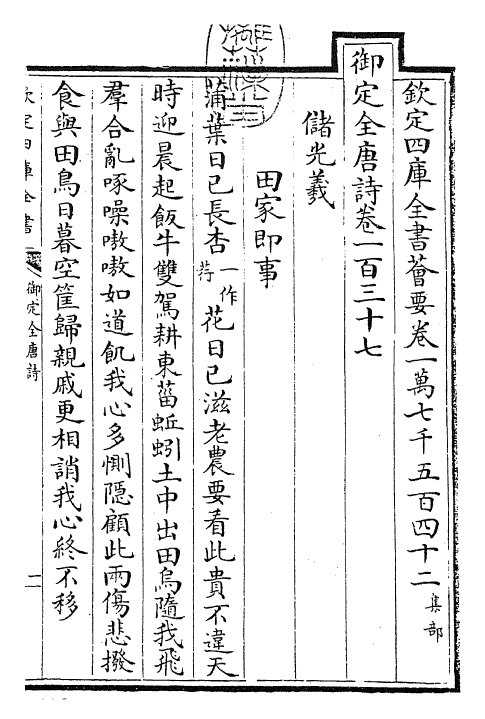 欽定四庫全書薈要卷一萬七千五百四十二 集部
御定全唐詩卷一百三十七
儲光羲
田家即事
蒲葉日已長杏一作荇花日已滋老農要看此貴不違天
時迎晨起飯牛雙駕耕東菑蚯蚓土中出田烏隨我飛
羣合亂啄噪嗷嗷如道飢我心多惻隱顧此兩傷悲撥
食與田鳥日暮空筐歸親戚更相誚我心終不移
欽定四庫全書 御定全唐詩 二